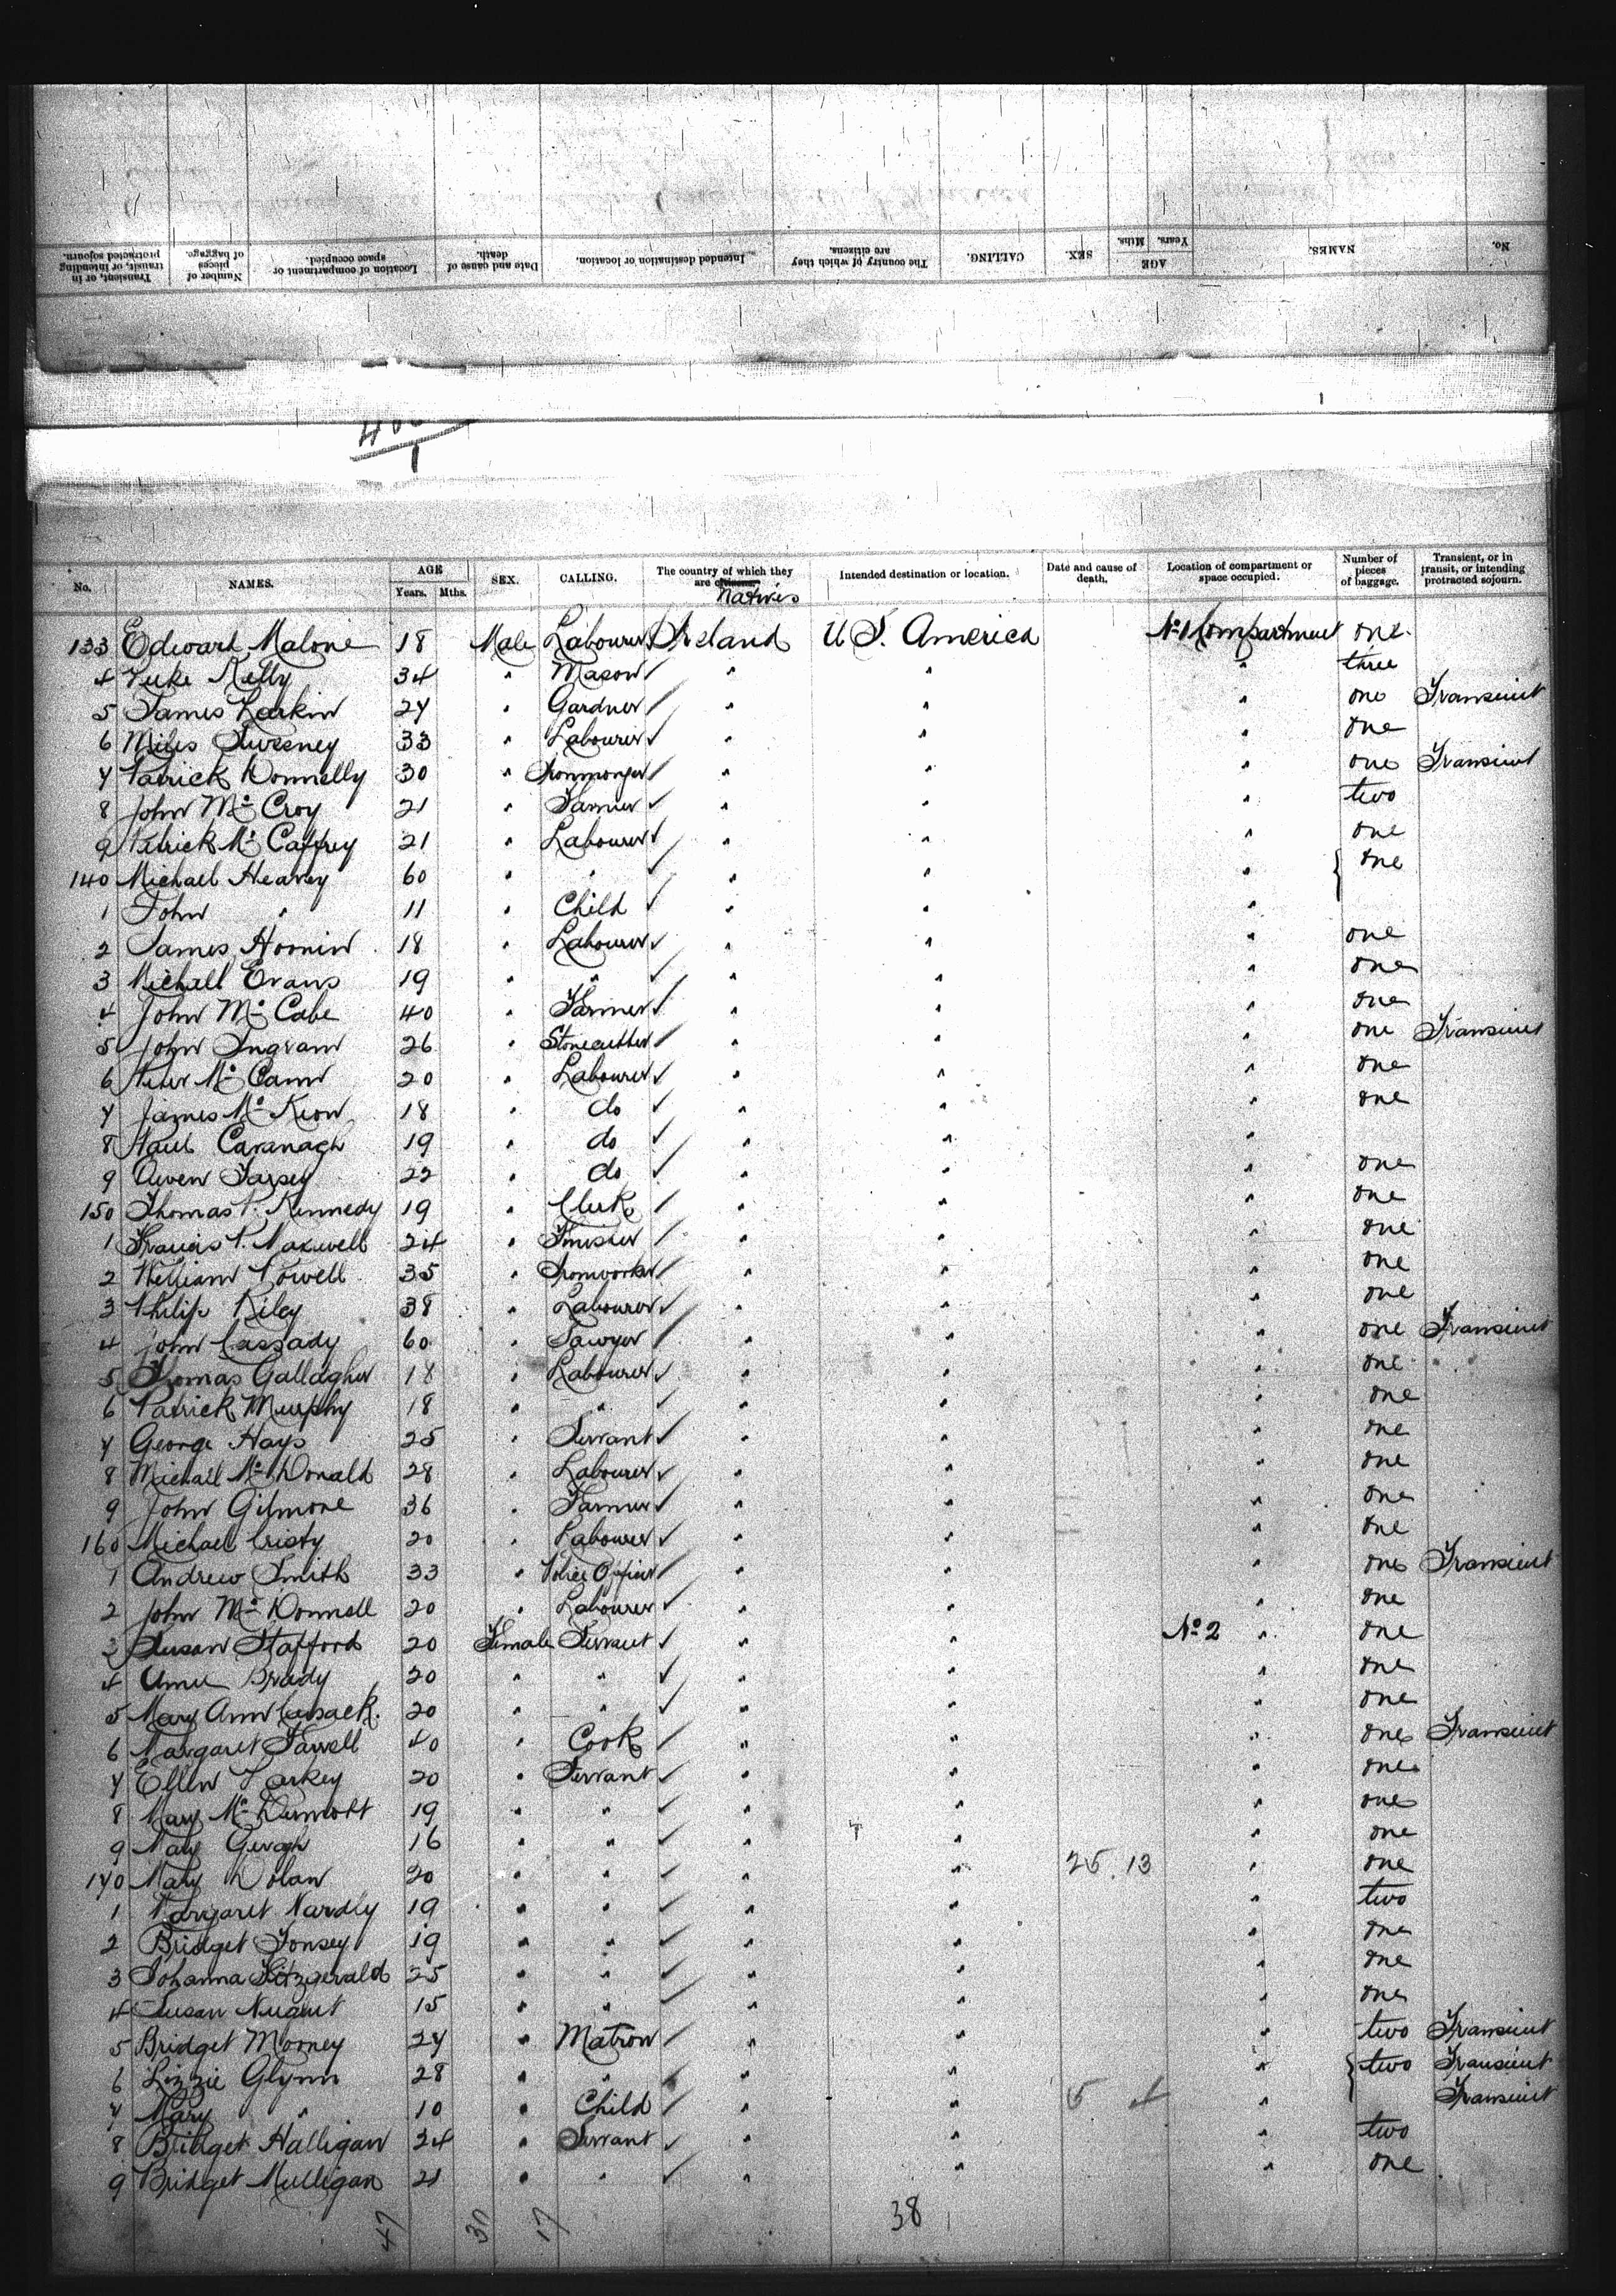 Transient, or in transit, or intending protracted sojourn. Number of pieces of baggage. Location of compartment or space occupied. Date and cause of death. Intended destination or location. The country of which they are citizens. CALLING. SEX. AGE Years. Mths. NAMES. No.
No. NAMES. AGE Years. Mths. SEX. CALLING. The country of which they are citizens. Natives Intended destination or location. Date and cause of death. Location of compartment or space occupied. Number of pieces of baggage. Transient, or in transit, or intending protracted sojourn.
133 Edward Malone 18 Male Labourer Ireland U S. America No 1 Compartment one
4 Luke Kelly 34 " Mason " " " three
5 James Larkin 27 " Gardner " " " one Transient
6 Miles Sweeney 33 " Labourer " " " one
7 Patrick Donnelly 30 " Ironmonger " " " one Transient
8 John Mc Croy 21 " Farmer " " " two
9 Patrick Mc Caffrey 21 " Labourer " " " one
140 Michael Heavey 60 " " " " " one
1 John " 11 " Child " " "
2 James Hoonin 18 " Labourer " " " one
3 Michall Evans 19 " " " " " one
4 John Mc Cabe 40 " Farmer " " " one
5 John Ingram 26 " Stonecutter " " " one Transient
6 Peter Mc Cann 20 " Labourer " " " one
7 James Mc Keon 18 " do " " " one
8 Paul Cavanagh 19 " do " " "
9 Owen Farsey 22 " do " " " one
150 Thomas P. Kennedy 19 " Clerk " " " one
1 Francis P. Maxwell 24 " Finisher " " " one
2 William Powell 35 " Ironworker " " " one
3 Philip Riley 38 " Labourer " " " one
4 John Cassady 60 " Sawyer " " " one Transient
5 Thomas Gallagher 18 " Labourer " " " one
6 Patrick Murphy 18 " " " " " one
7 George Hays 25 " Servant " " " one
8 Michall Mc Donald 28 " Labourer " " " one
9 John Gilmore 36 " Farmer " " " one
160 Michael Cristy 20 " Labourer " " " one
1 Andrew Smith 33 " Police Officer " " " one Transient
2 John Mc Donnell 20 " Labourer " " " one
3 Susan Stafford 20 Female Servant " " No 2 " one
4 Annie Brady 20 " " " " " one
5 Mary Ann Cusack 20 " " " " " one
6 Margaret Farrell 40 " Cook " " " one Transient
7 Ellen Larkey 20 " Servant " " " one
8 Mary Mc Dermott 19 " " " " " one
9 Mary Geragh 16 " " " " " one
170 Mary Dolan 20 " " " " 25 13 " one
1 Margaret Nardly 19 " " " " " two
2 Bridget Fonsey 19 " " " " " one
3 Johanna Fitzgerald 25 " " " " " one
4 Susan Nugent 15 " " " " " one
5 Bridget Mooney 27 " Matron " " " two Transient
6 Lizzie Glynn 28 " " " " " two Transient
7 Mary " 10 " Child " " 5 " Transient
8 Bridget Halligan 24 " Servant " " " two
9 Bridget Mulligan 21 " " " " " one
47 30 17 38